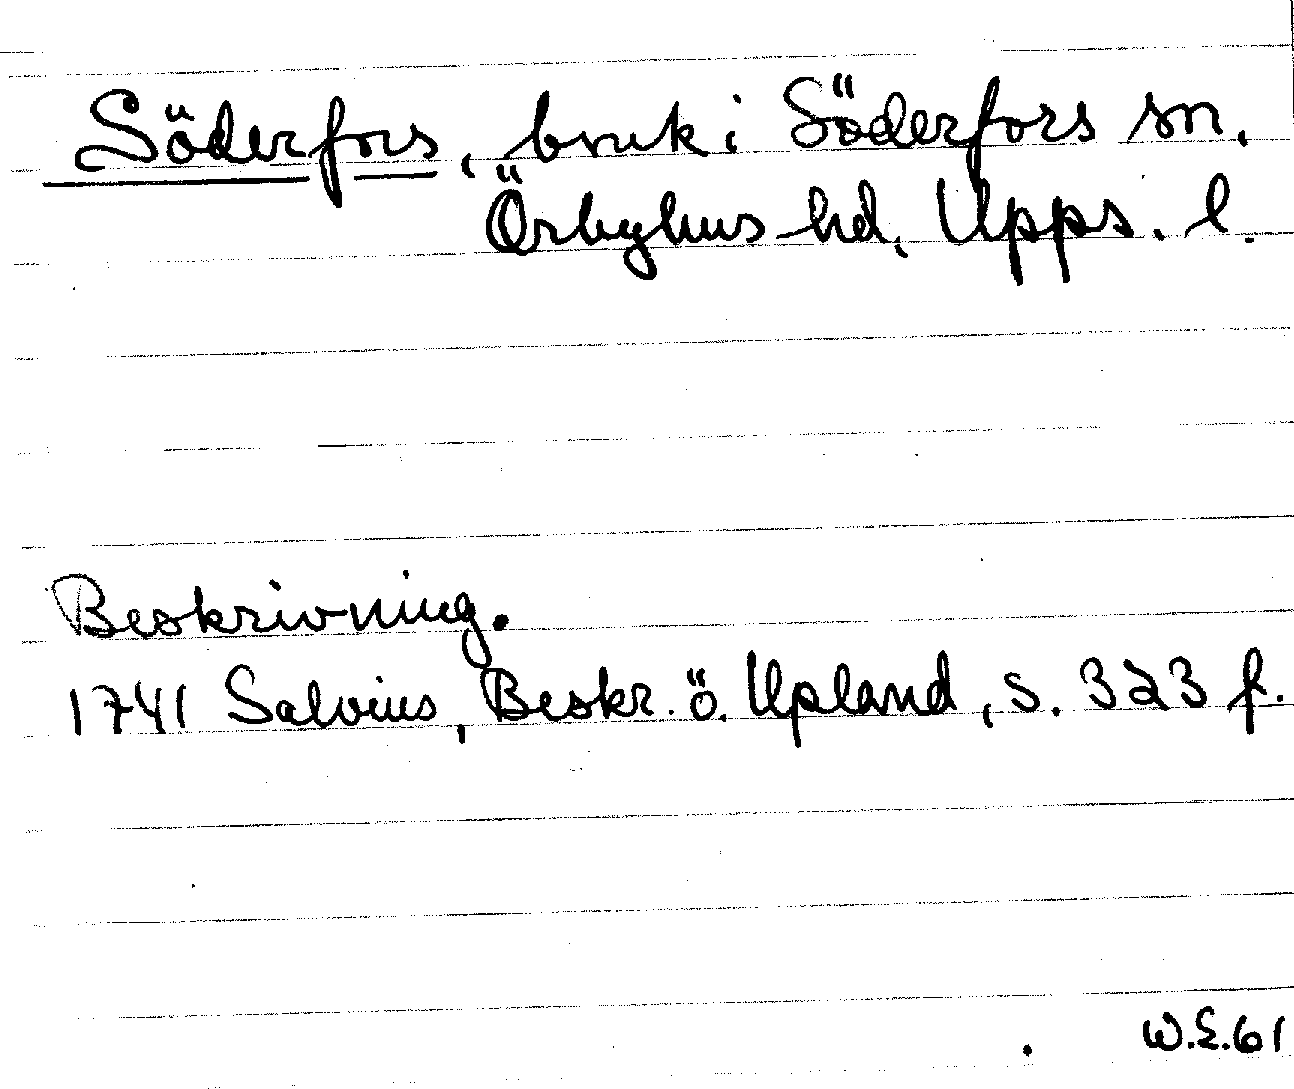 Söderfors, bruk i Söderfors sn,
Örbyhus hd, Upps. l.
Beskrivning.
1741 Salvius, Beskr. ö. Upland, s. 323 f.
W.E.61